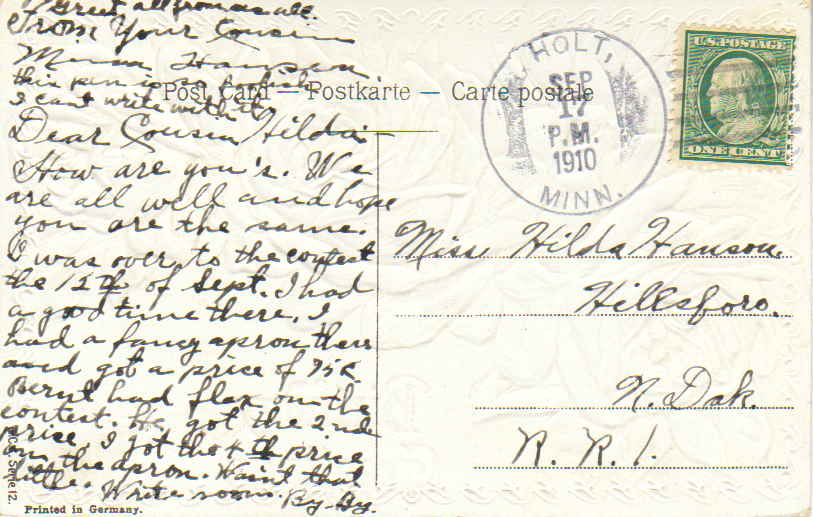 Greet all from us all.
From Your Cousin
Minna Hanson
this pen is so
I cant write with it
Post Card — Postkarte — Carte postale
Dear Cousin Hilda:—
How are you's. We
are all well and hope
you are the same.
I was over to the contest
the 12th of Sept. I had
a good time there. I
had a fancy apron ther
and got a price of 75¢.
Bernt had flax on the
contest. He got the 2nd
price. I got the 4th price
on the apron. Wasnt that
little. Write soon. By-By.
HOLT,
SEP
17
P.M.
1910
MINN.
U.S. POSTAGE
ONE CENT
Miss Hilda Hanson.
Hillsboro.
N. Dak.
R. R. 1.
Serie 12.
Printed in Germany.